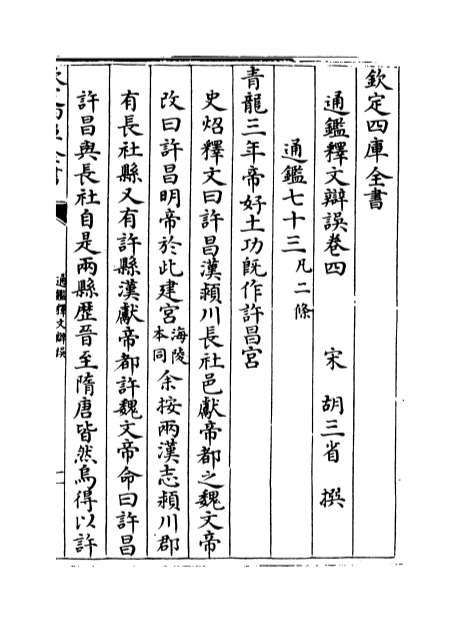 欽定四庫全書
通鑑釋文辯誤卷四 宋 胡三省 撰
通鑑七十三凡二條
青龍三年帝好土功既作許昌宮
史炤釋文曰許昌漢潁川長社邑獻帝都之魏文帝
改曰許昌明帝於此建宮海陵本同余按兩漢志潁川郡
有長社縣又有許縣漢獻帝都許魏文帝命曰許昌
許昌與長社自是兩縣歷晉至隋唐皆然烏得以許
通鑑釋文辯誤